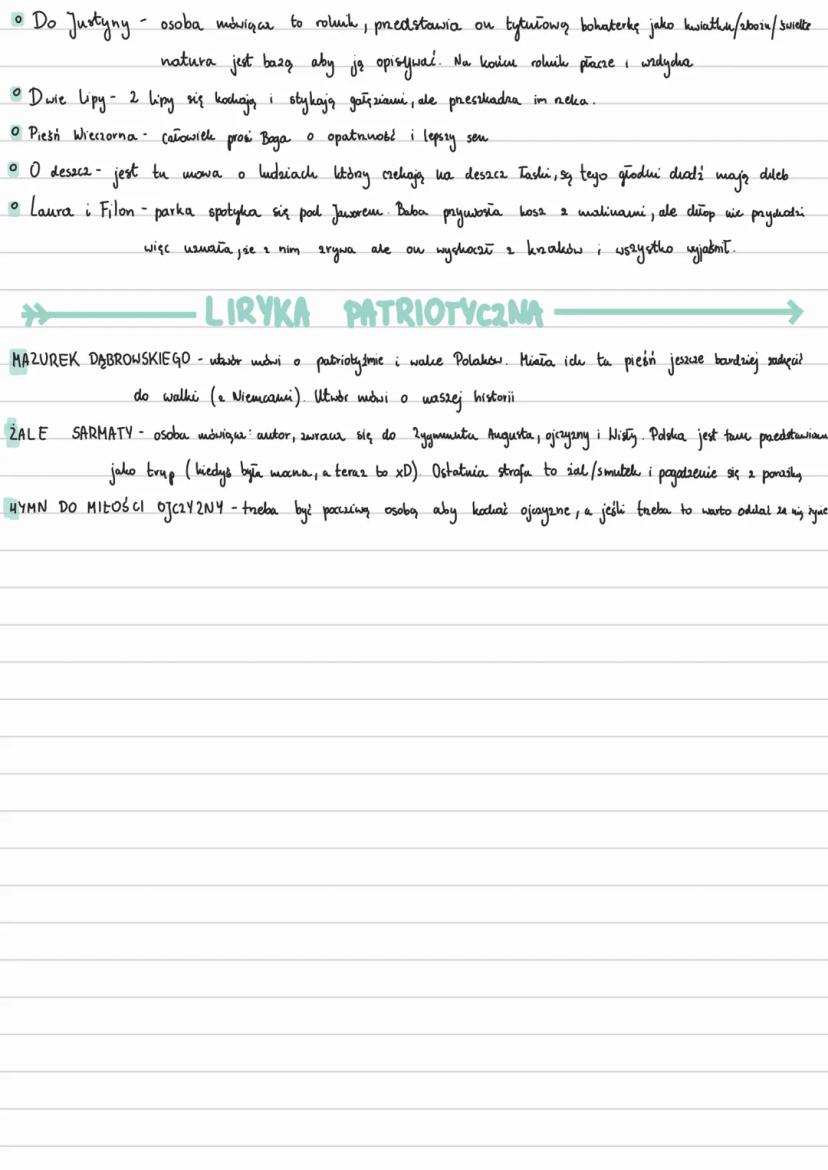 Do Justyny - osoba mówiąca to rolnik, przedstawia on tytułową bohaterkę jako kwiatku/zboże/światło
natura jest bazą aby ją opisywać. Na końcu rolnik płacze i wzdycha
Dwie Lipy - 2 lipy się kochają i stykają gałęziami, ale przeszkadza im rzeka.
Pieśń Wieczorna - człowiek prosi Boga o opatrzność i lepszy sen
O deszcz - jest tu mowa o ludziach którzy czekają na deszcz łaski, są tego głodni chodź mają chleb
Laura i Filon - parka spotyka się pod Jaworem. Baba przywosła kosz z malinami, ale chłop nie przychodzi
więc uznała, że z nim zrywa ale on wyskoczł z krzaków i wszystko wyjaśnił.
LIRYKA PATRIOTYCZNA
MAZUREK DĄBROWSKIEGO - utwór mówi o patriotyźmie i walce Polaków. Miała ich ta pieśń jeszcze bardziej zachęcić
do walki (z Niemcami). Utwór mówi o naszej historii
ŻALE SARMATY - osoba mówiąca: autor, zwraca się do Zygmunta Augusta, ojczyzny i Wisły. Polska jest tam przedstawiona
jako trup (kiedyś była mocna, a teraz to xD). Ostatnia strofa to żal/smutek i pogodzenie się z porażką
HYMN DO MIŁOŚCI OJCZYZNY - trzeba być poczciwą osobą aby kochać ojczyznę, a jeśli trzeba to warto oddać za nią życie